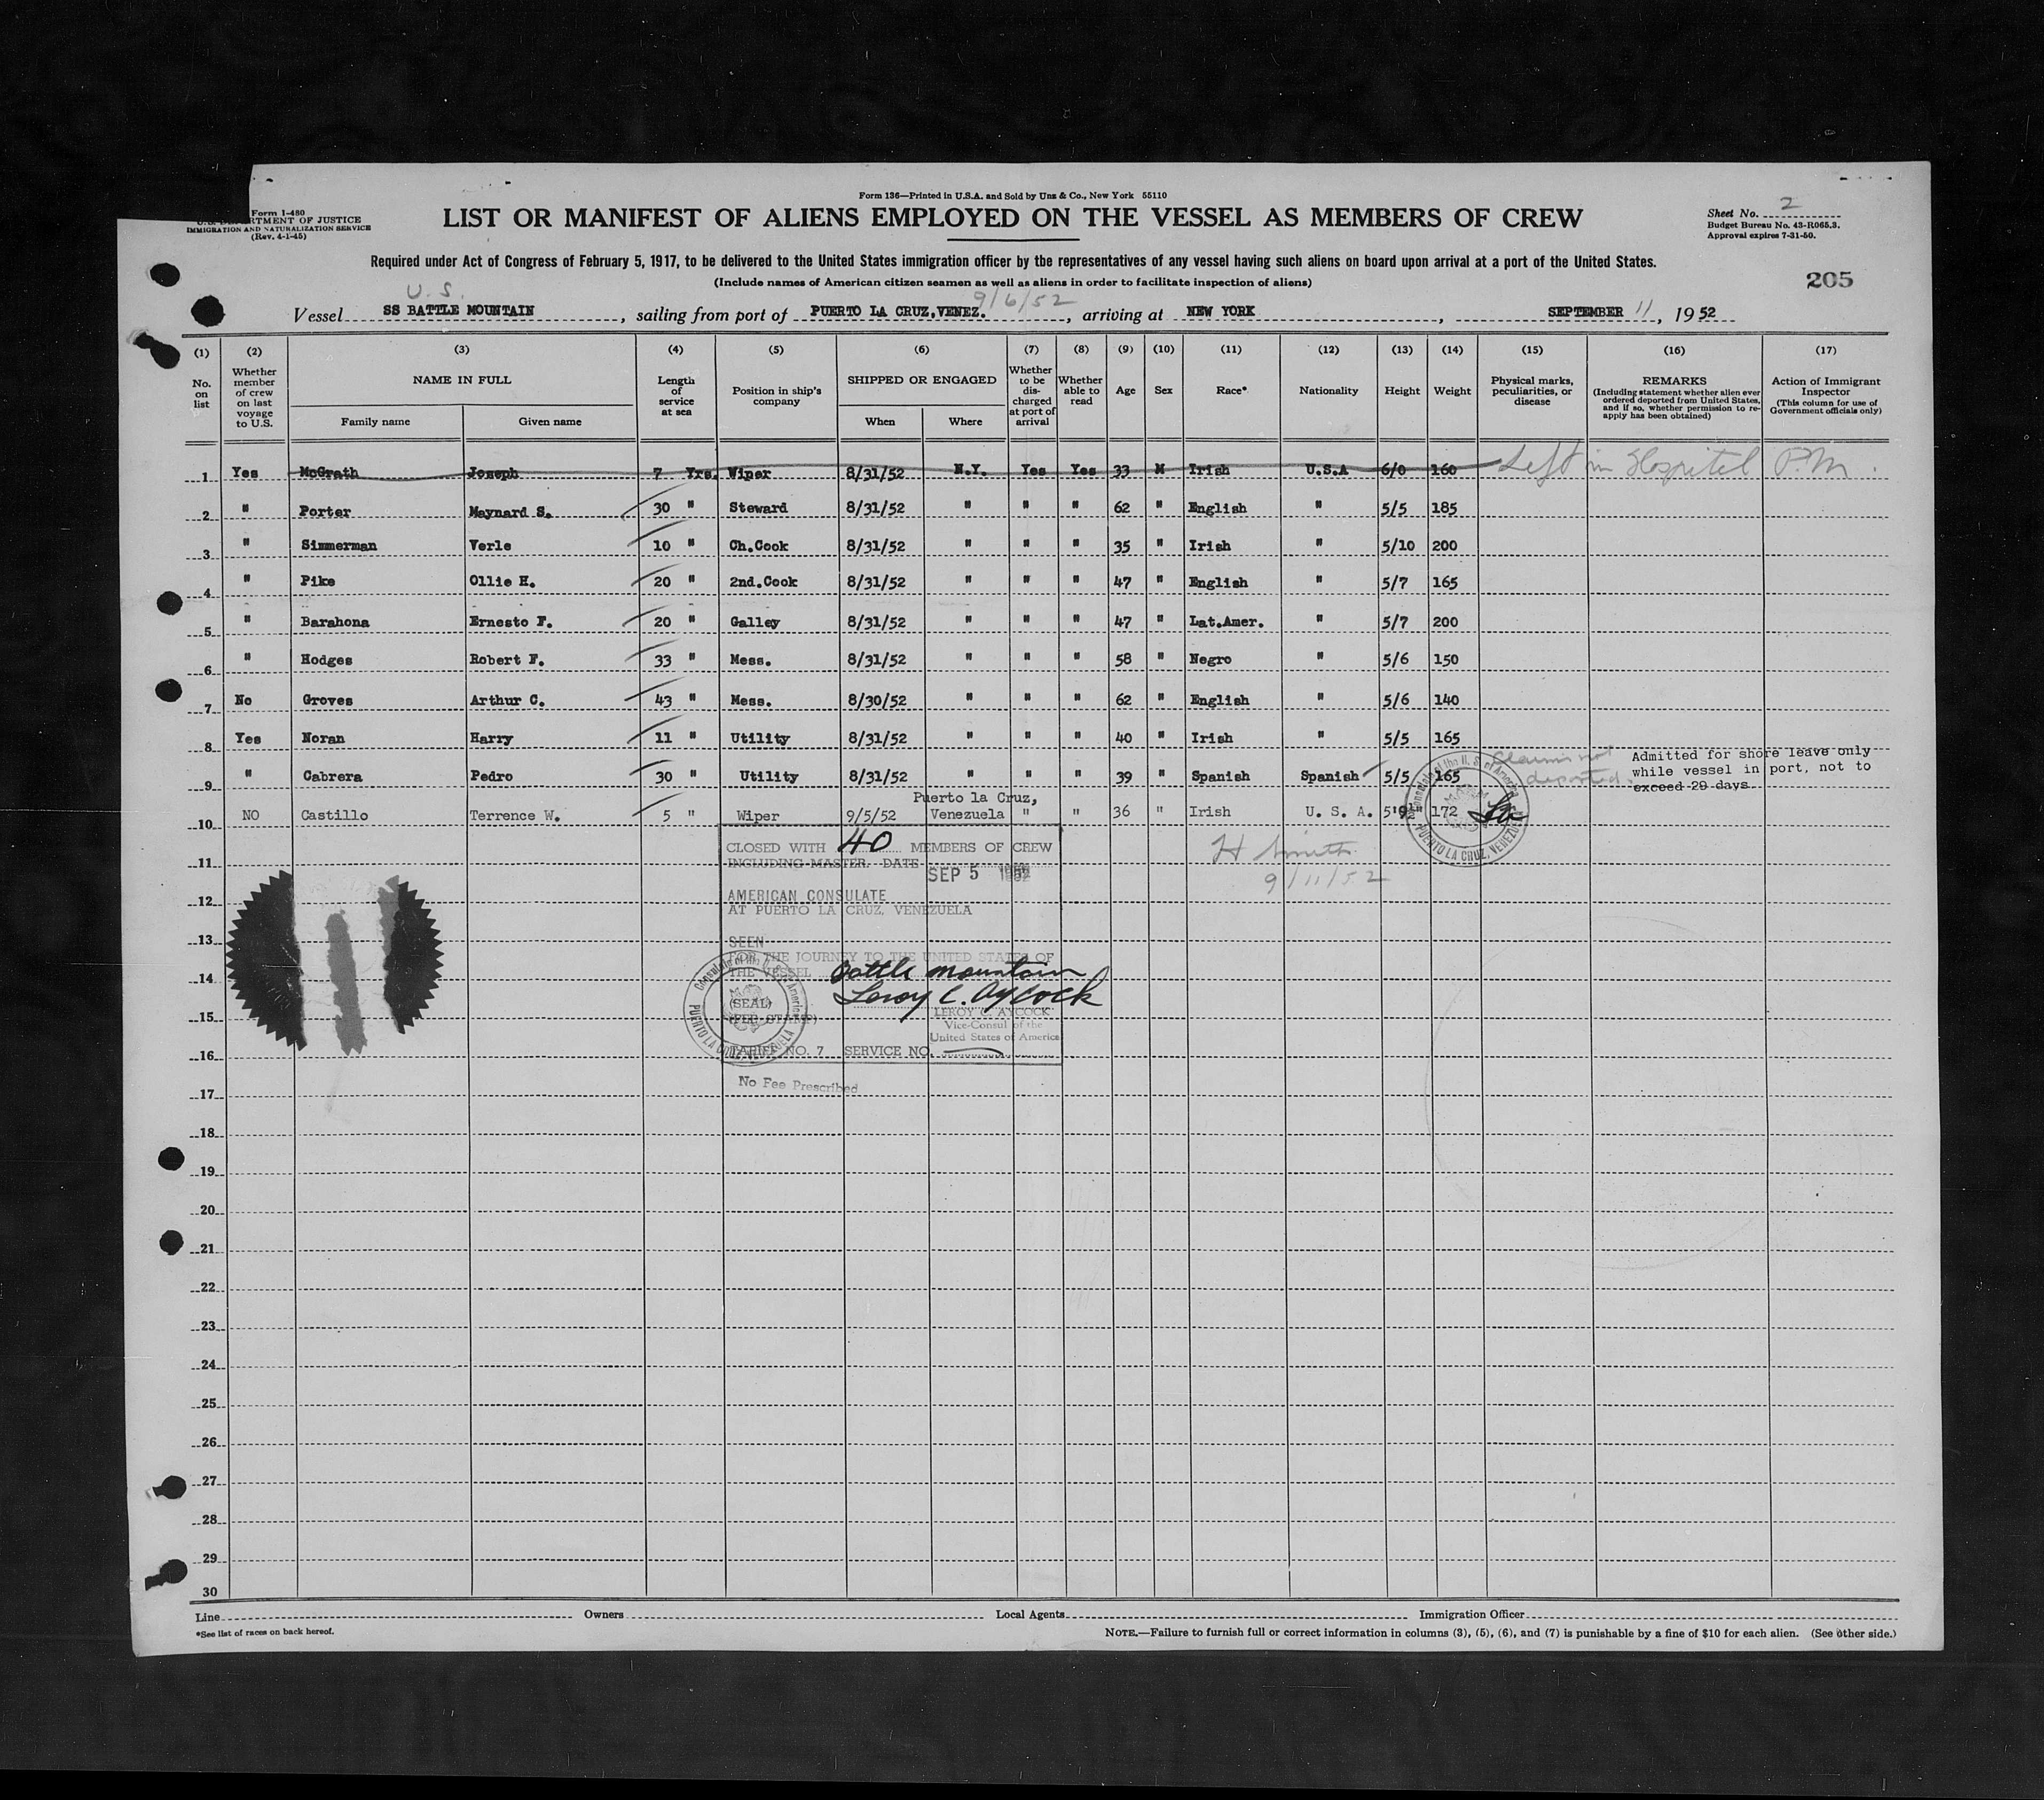 Form 136—Printed in U.S.A. and Sold by Unz & Co., New York 55110
Form 1-480
U.S. DEPARTMENT OF JUSTICE
IMMIGRATION AND NATURALIZATION SERVICE
(Rev. 4-1-45)
LIST OR MANIFEST OF ALIENS EMPLOYED ON THE VESSEL AS MEMBERS OF CREW
Sheet No. 2
Budget Bureau No. 43-R065.3.
Approval expires 7-31-50.
Required under Act of Congress of February 5, 1917, to be delivered to the United States immigration officer by the representatives of any vessel having such aliens on board upon arrival at a port of the United States.
(Include names of American citizen seamen as well as aliens in order to facilitate inspection of aliens)
205
U. S. 9/6/52
Vessel SS BATTLE MOUNTAIN, sailing from port of PUERTO LA CRUZ,VENEZ., arriving at NEW YORK, SEPTEMBER 11, 1952
(1) (2) (3) (4) (5) (6) (7) (8) (9) (10) (11) (12) (13) (14) (15) (16) (17)
No. on list
Whether member of crew on last voyage to U.S.
NAME IN FULL
Family name
Given name
Length of service at sea
Position in ship's company
SHIPPED OR ENGAGED
When
Where
Whether to be discharged at port of arrival
Whether able to read
Age
Sex
Race*
Nationality
Height
Weight
Physical marks, peculiarities, or disease
REMARKS
(Including statement whether alien ever ordered deported from United States, and if so, whether permission to re-apply has been obtained)
Action of Immigrant Inspector
(This column for use of Government officials only)
1 Yes McGrath Joseph 7 Yrs. Wiper 8/31/52 N.Y. Yes Yes 33 M Irish U.S.A 6/0 160 Left in Hospital P.M.
2 " Porter Maynard S. 30 " Steward 8/31/52 " " " 62 " English " 5/5 185
3 " Simmerman Verle 10 " Ch.Cook 8/31/52 " " " 35 " Irish " 5/10 200
4 " Pike Ollie H. 20 " 2nd.Cook 8/31/52 " " " 47 " English " 5/7 165
5 " Barahona Ernesto F. 20 " Galley 8/31/52 " " " 47 " Lat.Amer. " 5/7 200
6 " Hodges Robert F. 33 " Mess. 8/31/52 " " " 58 " Negro " 5/6 150
7 No Groves Arthur C. 43 " Mess. 8/30/52 " " " 62 " English " 5/6 140
8 Yes Noran Harry 11 " Utility 8/31/52 " " " 40 " Irish " 5/5 165
9 " Cabrera Pedro 30 " Utility 8/31/52 " " " 39 " Spanish Spanish 5/5 165 Claims not deported
Admitted for shore leave only
while vessel in port, not to
exceed 29 days.
Puerto la Cruz,
10 NO Castillo Terrence W. 5 " Wiper 9/5/52 Venezuela " " 36 " Irish U. S. A. 5'9½" 172
Consulate of the U. S. of America
PUERTO LA CRUZ, VENEZUELA
CLOSED WITH 40 MEMBERS OF CREW
INCLUDING MASTER. DATE
SEP 5 1952
H Smith
9/11/52
AMERICAN CONSULATE
AT PUERTO LA CRUZ, VENEZUELA
SEEN
FOR THE JOURNEY TO THE UNITED STATES OF
THE VESSEL Battle Mountain
Leroy C. Aycock
(SEAL)
(FEE STAMP)
LEROY C. AYCOCK
Vice-Consul of the
United States of America
TARIFF NO. 7 SERVICE NO.
Consulate of the U. S. of America
PUERTO LA CRUZ, VENEZUELA
No Fee Prescribed
11
12
13
14
15
16
17
18
19
20
21
22
23
24
25
26
27
28
29
30
Line Owners Local Agents Immigration Officer
*See list of races on back hereof.
NOTE.—Failure to furnish full or correct information in columns (3), (5), (6), and (7) is punishable by a fine of $10 for each alien. (See other side.)